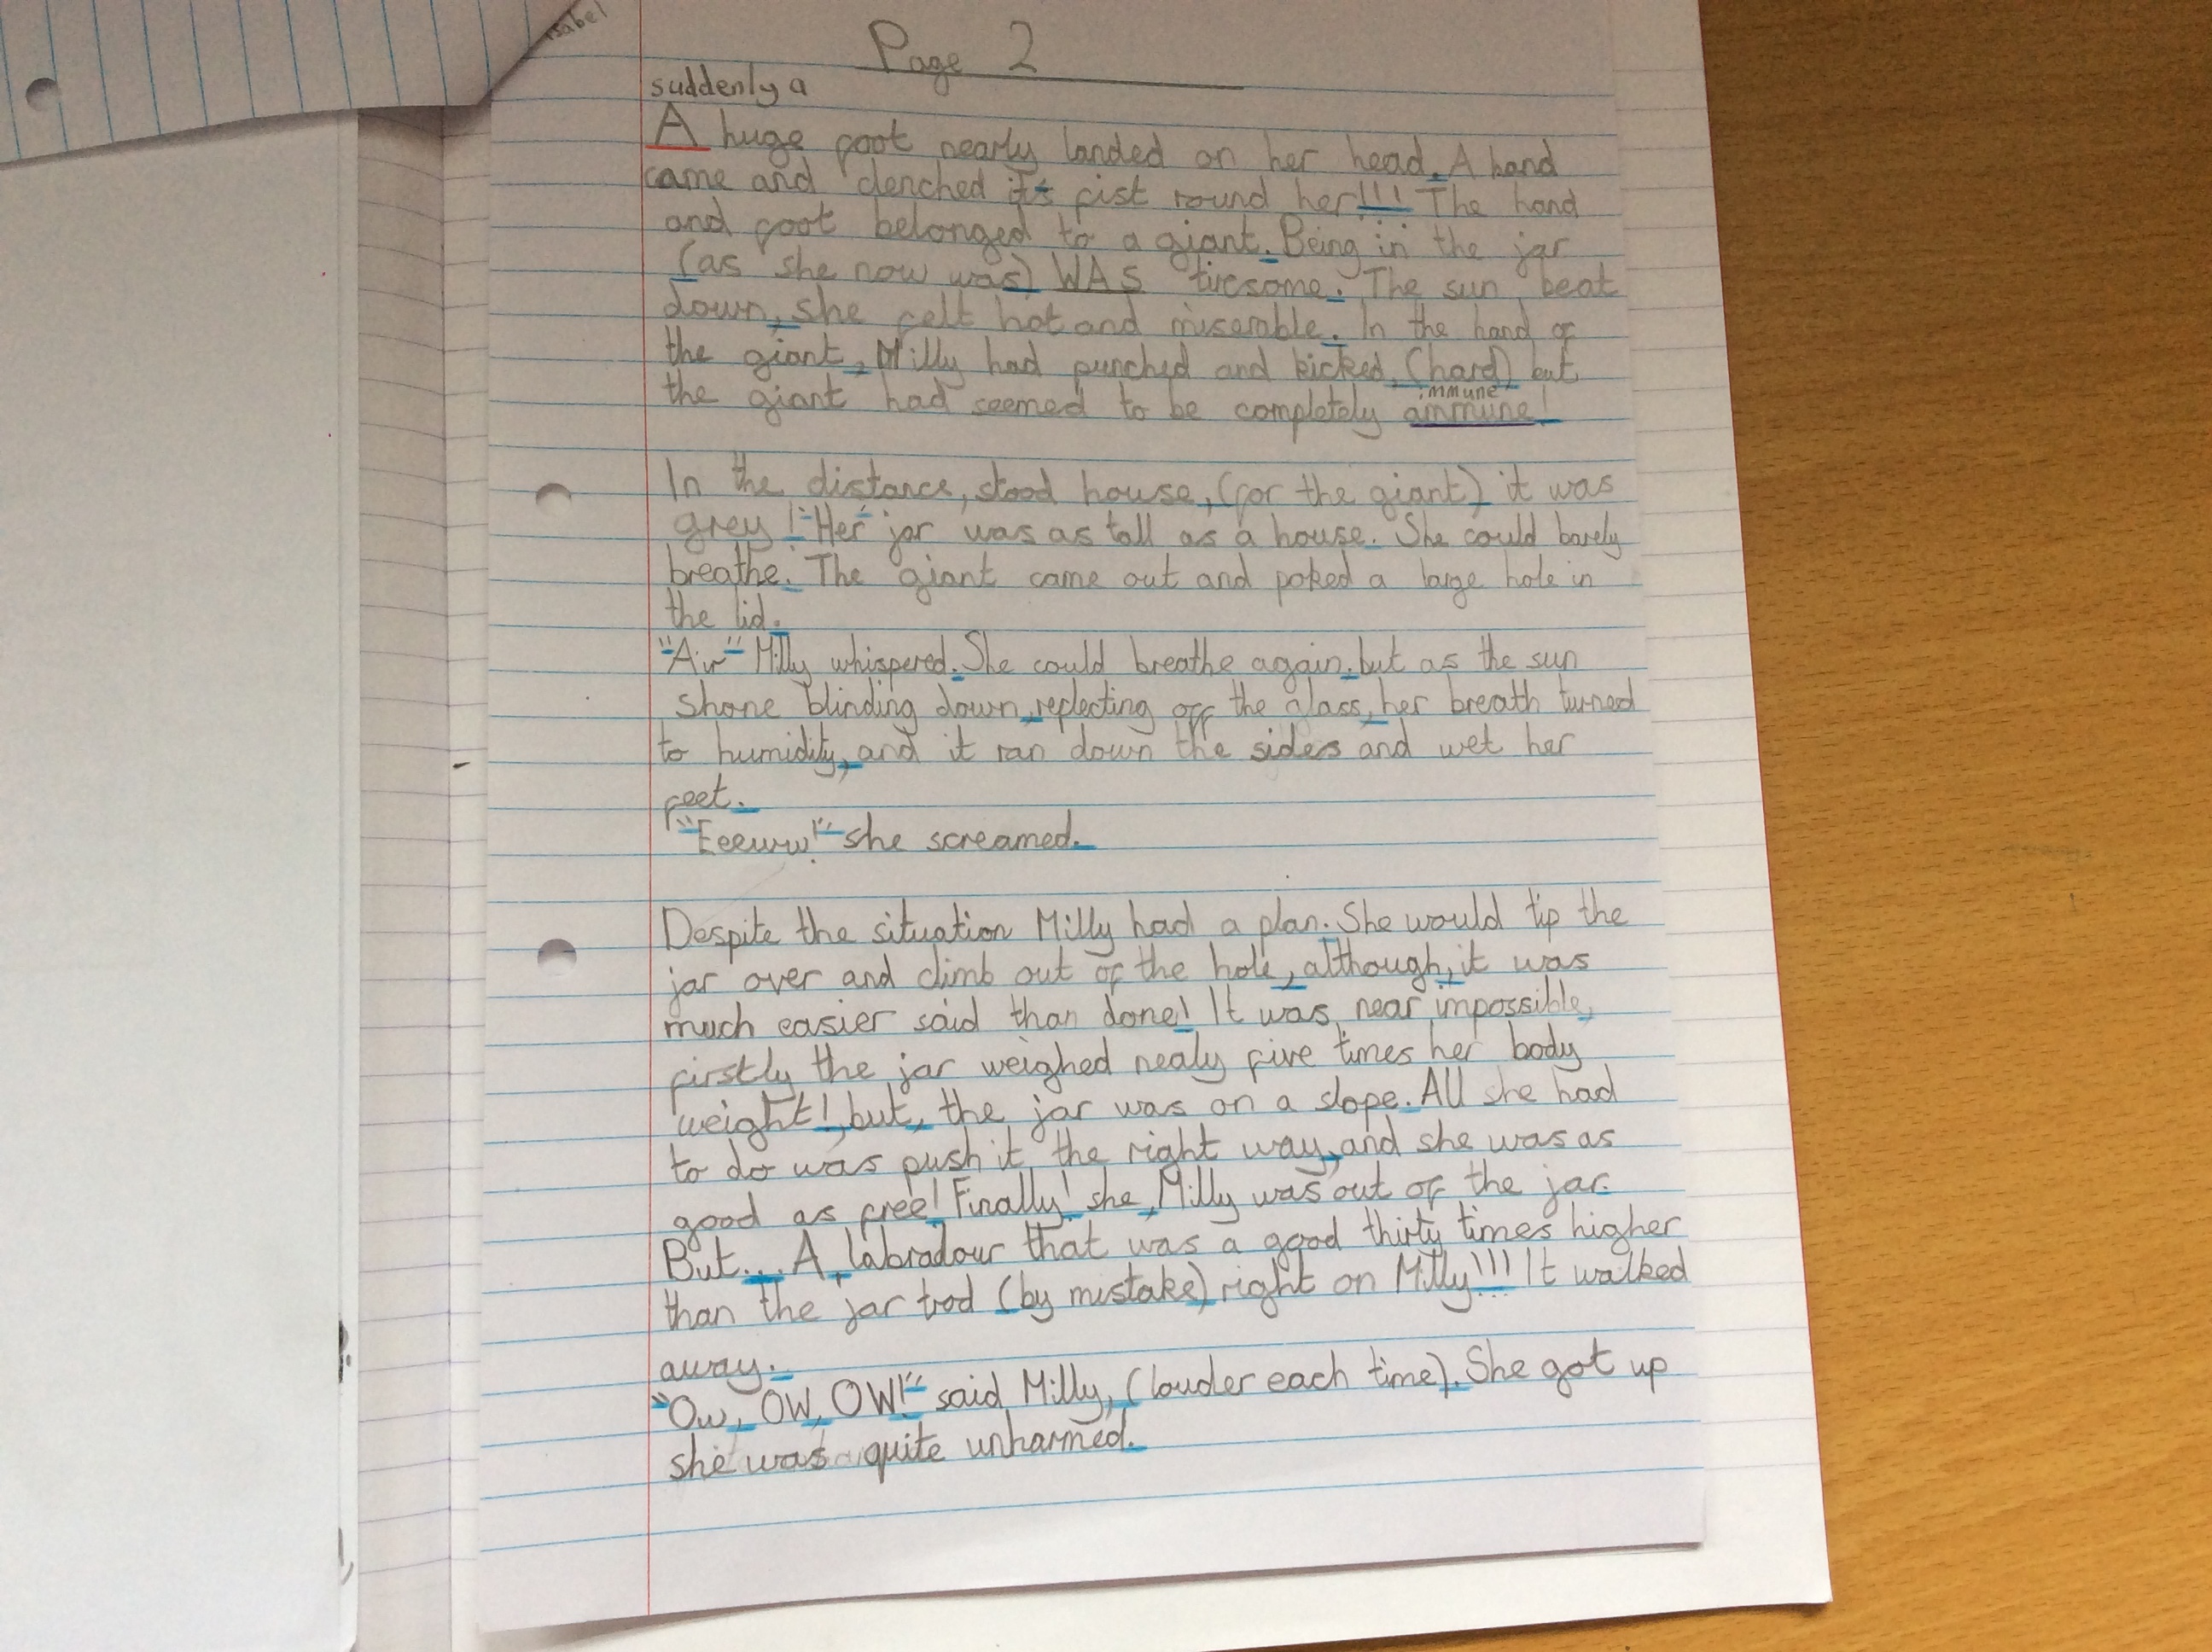 Isabel
Page 2
suddenly a
A huge foot nearly landed on her head. A hand
came and clenched its fist round her!!! The hand
and foot belonged to a giant. Being in the jar
(as she now was) WAS tiresome. The sun beat
down, she felt hot and miserable. In the hand of
the giant, Milly had punched and kicked, (hard) but
immune
the giant had seemed to be completely ammune!
In the distance, stood house, (for the giant) it was
grey! Her jar was as tall as a house. She could barely
breathe. The giant came out and poked a large hole in
the lid.
"Air" Milly whispered. She could breathe again, but as the sun
shone blinding down, reflecting off the glass, her breath turned
to humidity, and it ran down the sides and wet her
feet.
"Eeeww!" she screamed.
Despite the situation Milly had a plan. She would tip the
jar over and climb out of the hole, although, it was
much easier said than done! It was near impossible,
firstly the jar weighed nealy five times her body
weight!, but, the jar was on a slope. All she had
to do was push it the right way, and she was as
good as free! Finally! she, Milly was out of the jar.
But... A, labradour that was a good thirty times higher
than the jar trod (by mistake) right on Milly!!! It walked
away.
"Ow, OW, OW!" said Milly, (louder each time). She got up
she was quite unharmed.